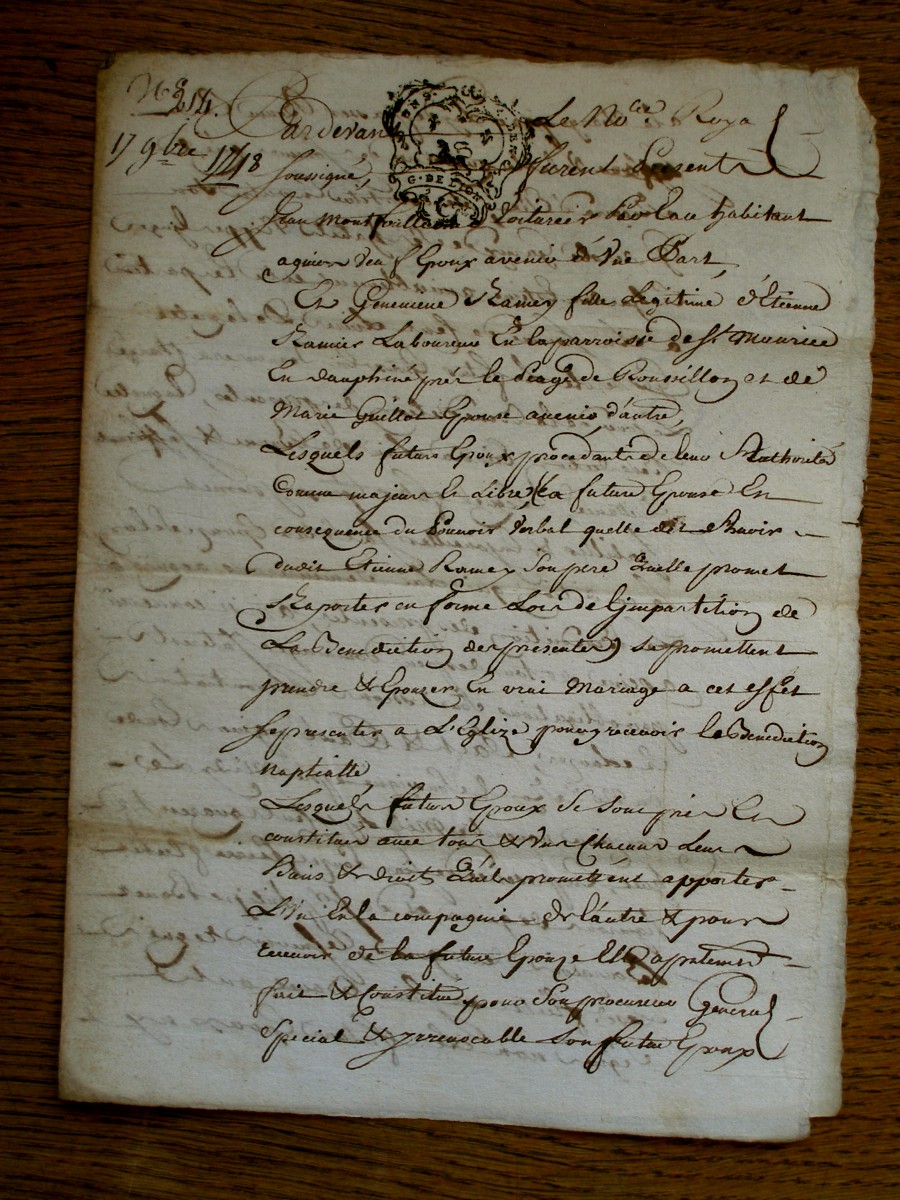 17 9bre 1748
Pardevant Le No.re Royal
soussigné, furent Presents
Jean voiturier par Eau habitant
a givors d'eu Epoux avenir d'Une Part,
Et Genevieve Ramey fille Legitime d'Etienne
Ramier Laboureur En la parroisse de St Mourice
En dauphiné prés le Péage de Roussillon et de
Marie Guillot Epouse avenir d'autre,
Lesquels futurs Epoux procedants de leur Authorité
Comme majeurs & Libre (La future Epouse En
consequence du Pouvoir Verbal quelle dit Avoir
dudit Etienne Ramey Son pere Quelle promet
Raporter en forme Lors de L'jmpartition de
La Benediction des presentes) se promettent
prendre & Epouzer En vrai Mariage a cet effet
se presenter a L'Eglize pour y recevoir la Benediction
nuptialle
Lesquels futurs Epoux se sont pris Et
constitués avec tous & Uns Chacuns Leurs
Biens & droits Qu'ils promettent apporter
L'Un En la compagnie de l'autre & pour
recevoir de la future Epouze Elle a presentement
fait & Constitué pour Son procureur General
Special & jrrevocable Son futur Epoux
G. DE LION